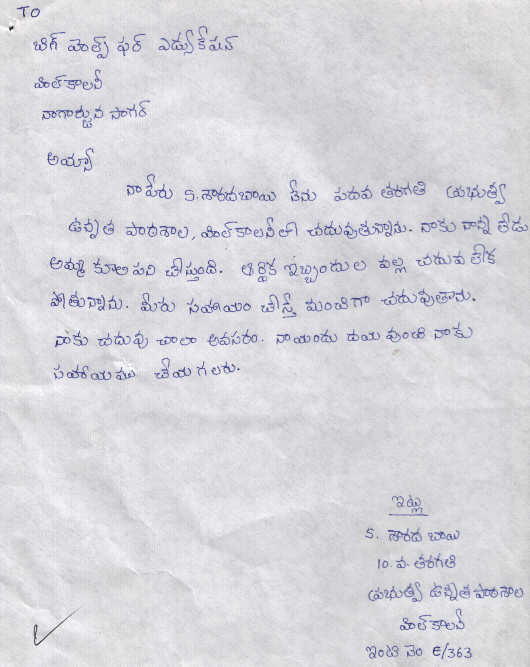 TO
బిగ్ హెల్ప్ ఫర్ ఎడ్యుకేషన్
హిల్ కాలనీ
నాగార్జున సాగర్
అయ్యా
నా పేరు S. శారదబాయి నేను పదవ తరగతి ప్రభుత్వ
ఉన్నత పాఠశాల, హిల్ కాలనీలో చదువుతున్నాను. నాకు నాన్న లేడు
అమ్మ కూలి పని చేస్తుంది. ఆర్థిక ఇబ్బందుల వల్ల చదువ లేక
పోతున్నాను. మీరు సహాయం చేస్తే మంచిగా చదువుతాను.
నాకు చదువు చాలా అవసరం. నాయందు దయ వుంచి నాకు
సహాయము చేయగలరు.
ఇట్లు
S. శారద బాయి
10. వ. తరగతి
ప్రభుత్వ ఉన్నత పాఠశాల
హిల్ కాలనీ
ఇంటి నెం E/363